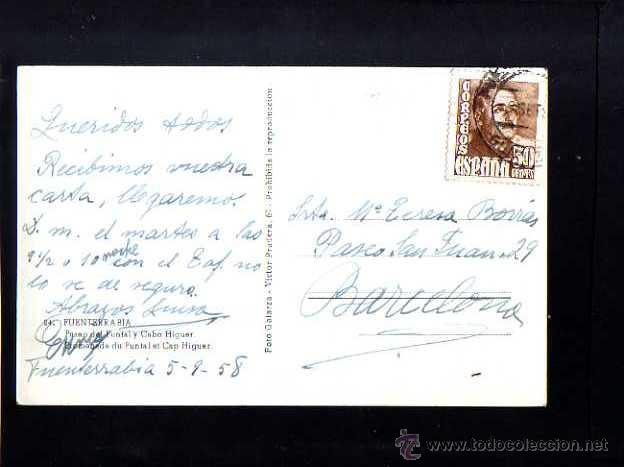 Queridos todos
Recibimos vuestra
carta, llegaremos.
D. m. el martes a las
9 1/2 o 10 noche con el Taf. no
lo se de seguro.
Abrazos Luisa
FUENTERRABIA
Paseo del Puntal y Cabo Higuer.
Promenade du Puntal et Cap Higuer.
Fuenterrabia 5-9-58
Foto Galarza - Victor Pradera, 6 - Prohibida la reproducción
CORREOS
ESPAÑA
50
CENTS
Srta. Mª Teresa Borrás
Paseo San Juan-29
Barcelona
todocoleccion
www.todocoleccion.net